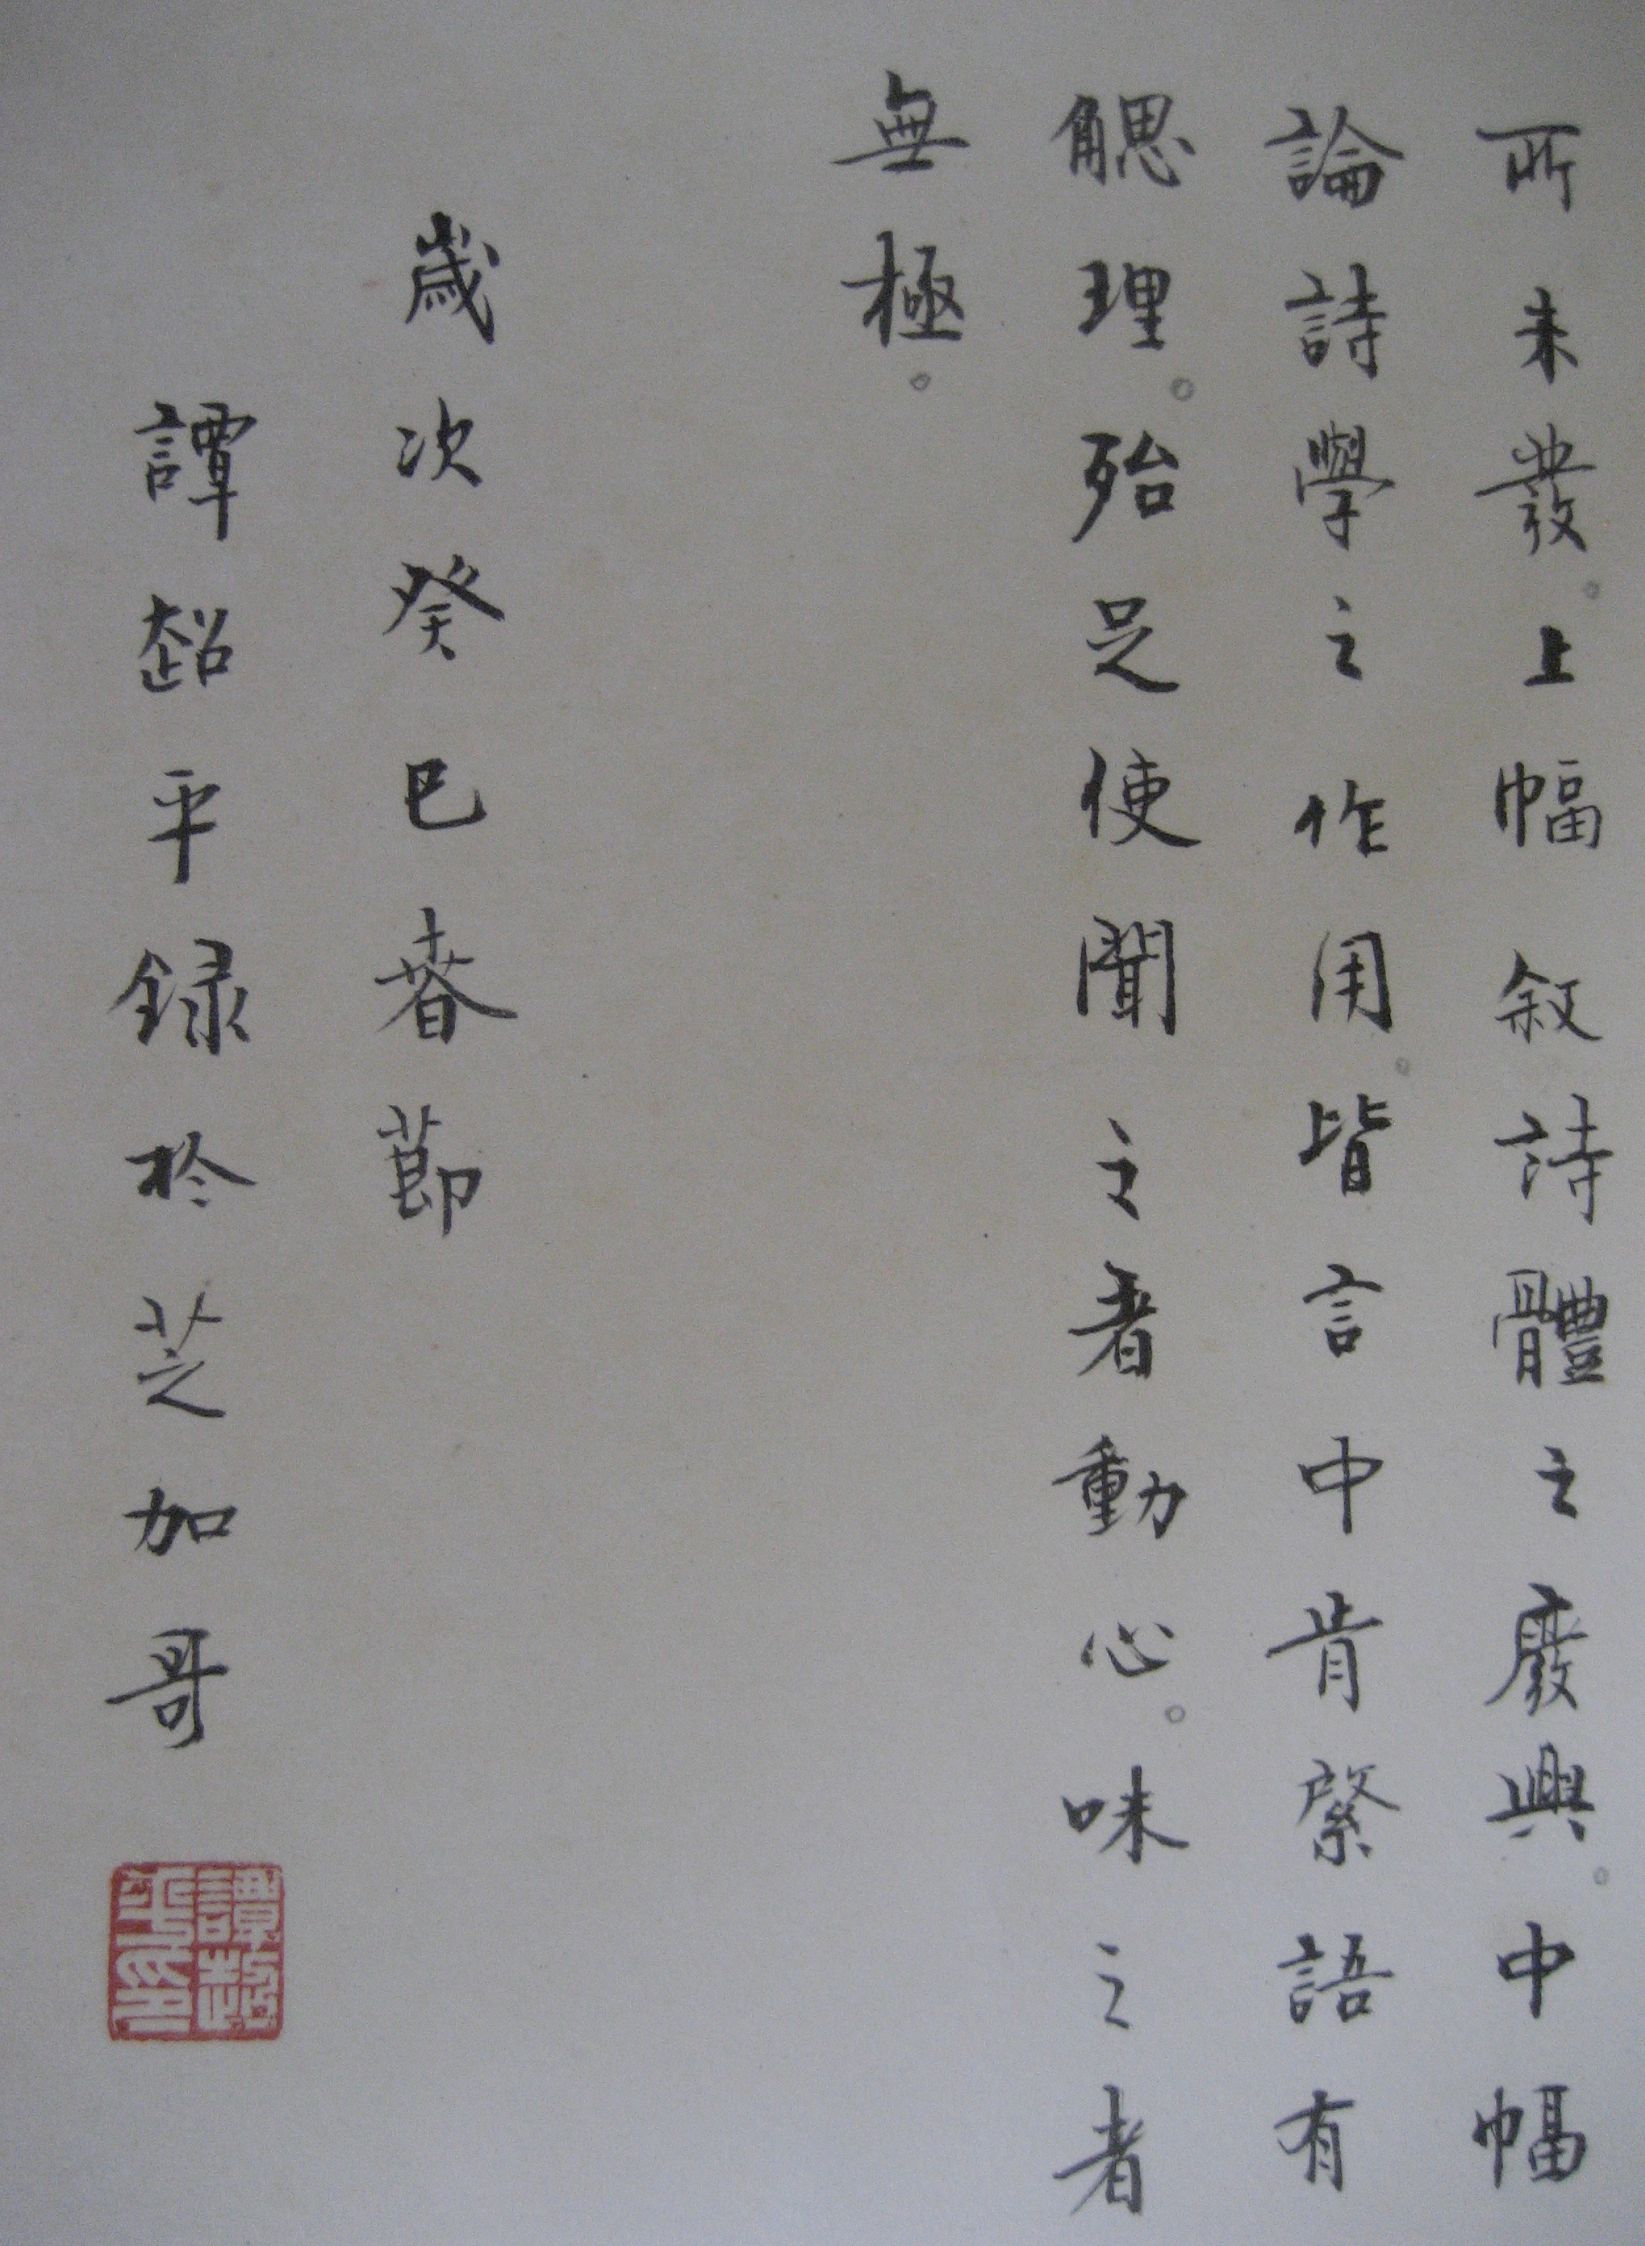 所未發。上幅敘詩體之廢興。中幅
論詩學之作用。皆言中肯綮語有
䚡理。殆足使聞之者動心。味之者
無極。
歲次癸巳春節
譚超平錄於芝加哥
譚超
平印